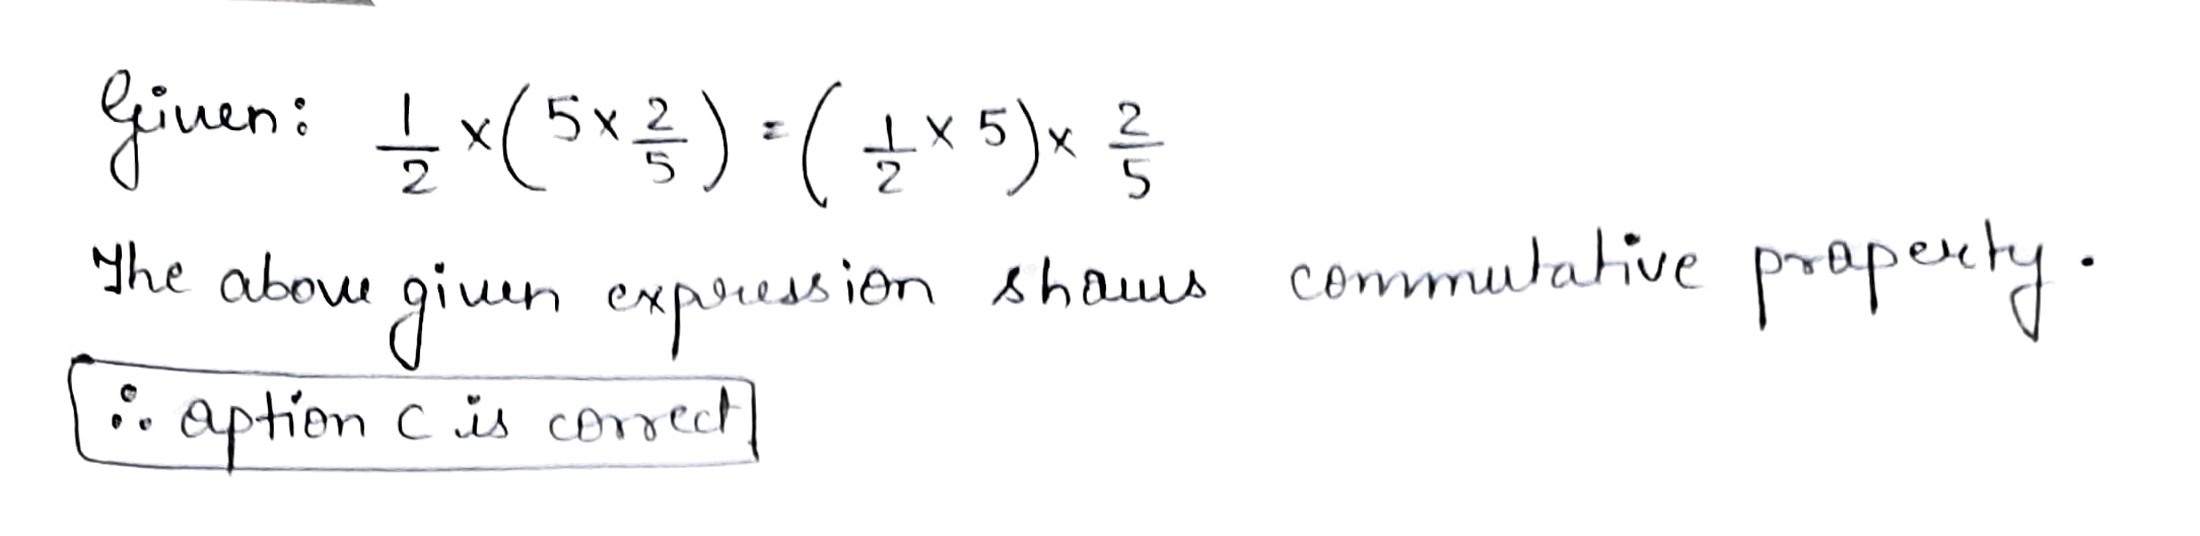 Given: 1/2 × (5 × 2/5) = (1/2 × 5) × 2/5
The above given expression shows commutative property.
∴ option C is correct